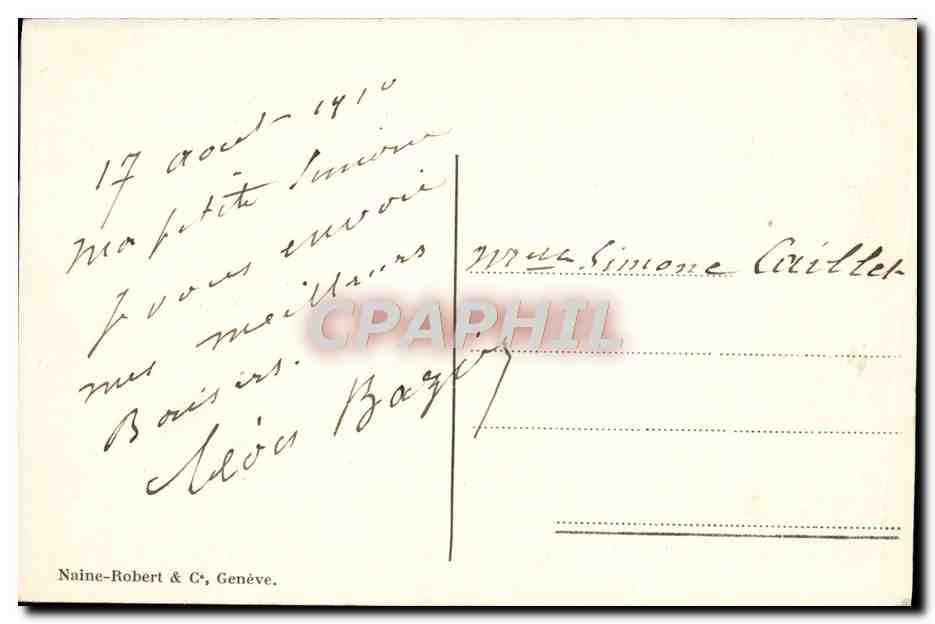 17 août 1910
Ma petite Simone
Je vous envoie
mes meilleurs
Baisers.
Mlle Simone Caillet
CPAPHIL
Naine-Robert & Cᵉ, Genève.